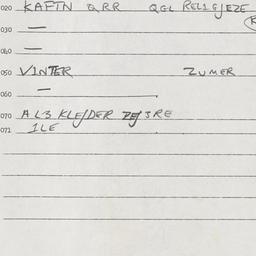 020 KAFTN QRR QGL RELIGJEZE
030 —
040 —
050 VINTER ZUMER
060 —
070 ALS KLEJDER ZEJSRE
071 ILE